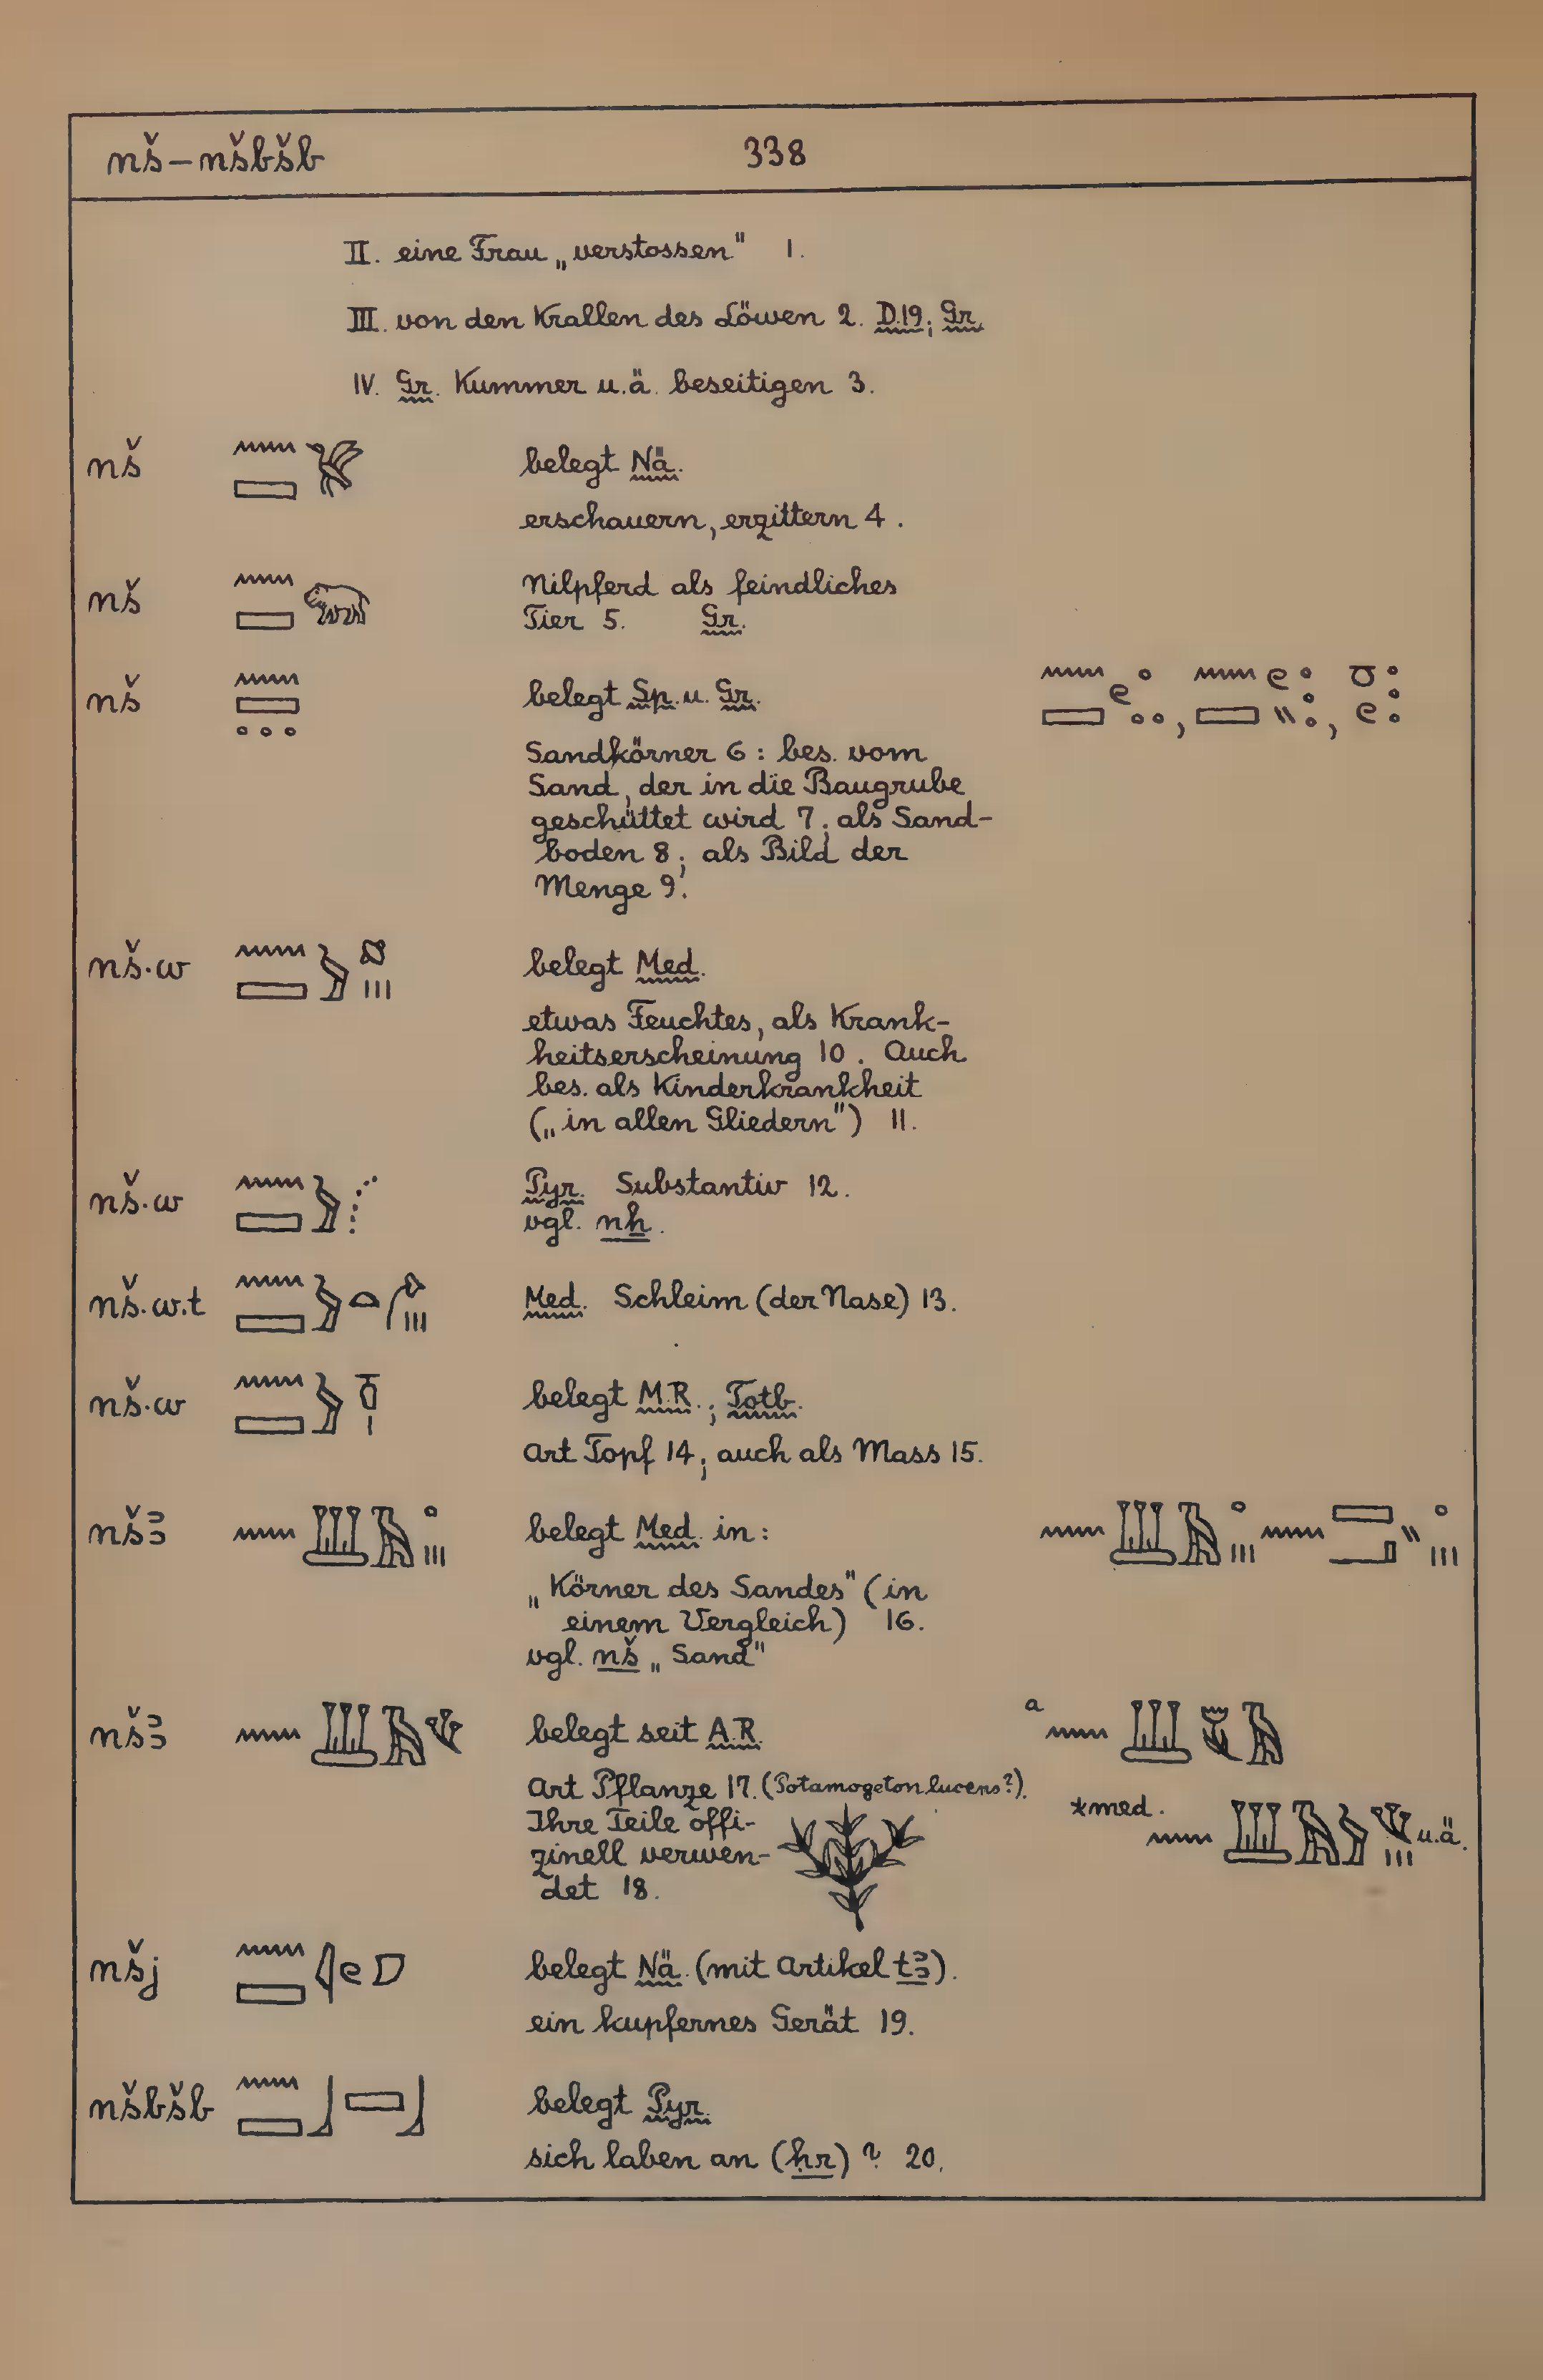 nš–nšbšb 338
II. eine Frau „verstossen" 1.
III. von den Krallen des Löwen 2. D.19; Gr.
IV. Gr. Kummer u.ä. beseitigen 3.
nš belegt Nä.
erschauern, erzittern 4.
nš Nilpferd als feindliches
Tier 5. Gr.
nš belegt Sp. u. Gr.
Sandkörner 6: bes. vom
Sand, der in die Baugrube
geschüttet wird 7; als Sand-
boden 8; als Bild der
Menge 9.
nš·w belegt Med.
etwas Feuchtes, als Krank-
heitserscheinung 10. Auch
bes. als Kinderkrankheit
(„in allen Gliedern") 11.
nš·w Pyr. Substantiv 12.
vgl. nh.
nš.w.t Med. Schleim (der Nase) 13.
nš·w belegt M.R.; Totb.
Art Topf 14; auch als Mass 15.
nšꜣ belegt Med. in:
„Körner des Sandes" (in
einem Vergleich) 16.
vgl. nš „Sand"
nšꜣ belegt seit A.R. a
Art Pflanze 17. (Potamogeton lucens?).
Ihre Teile offi-
zinell verwen-
det 18.
*med. u.ä.
nšj belegt Nä. (mit Artikel tꜣ).
ein kupfernes Gerät 19.
nšbšb belegt Pyr.
sich laben an (ḥr) ? 20.